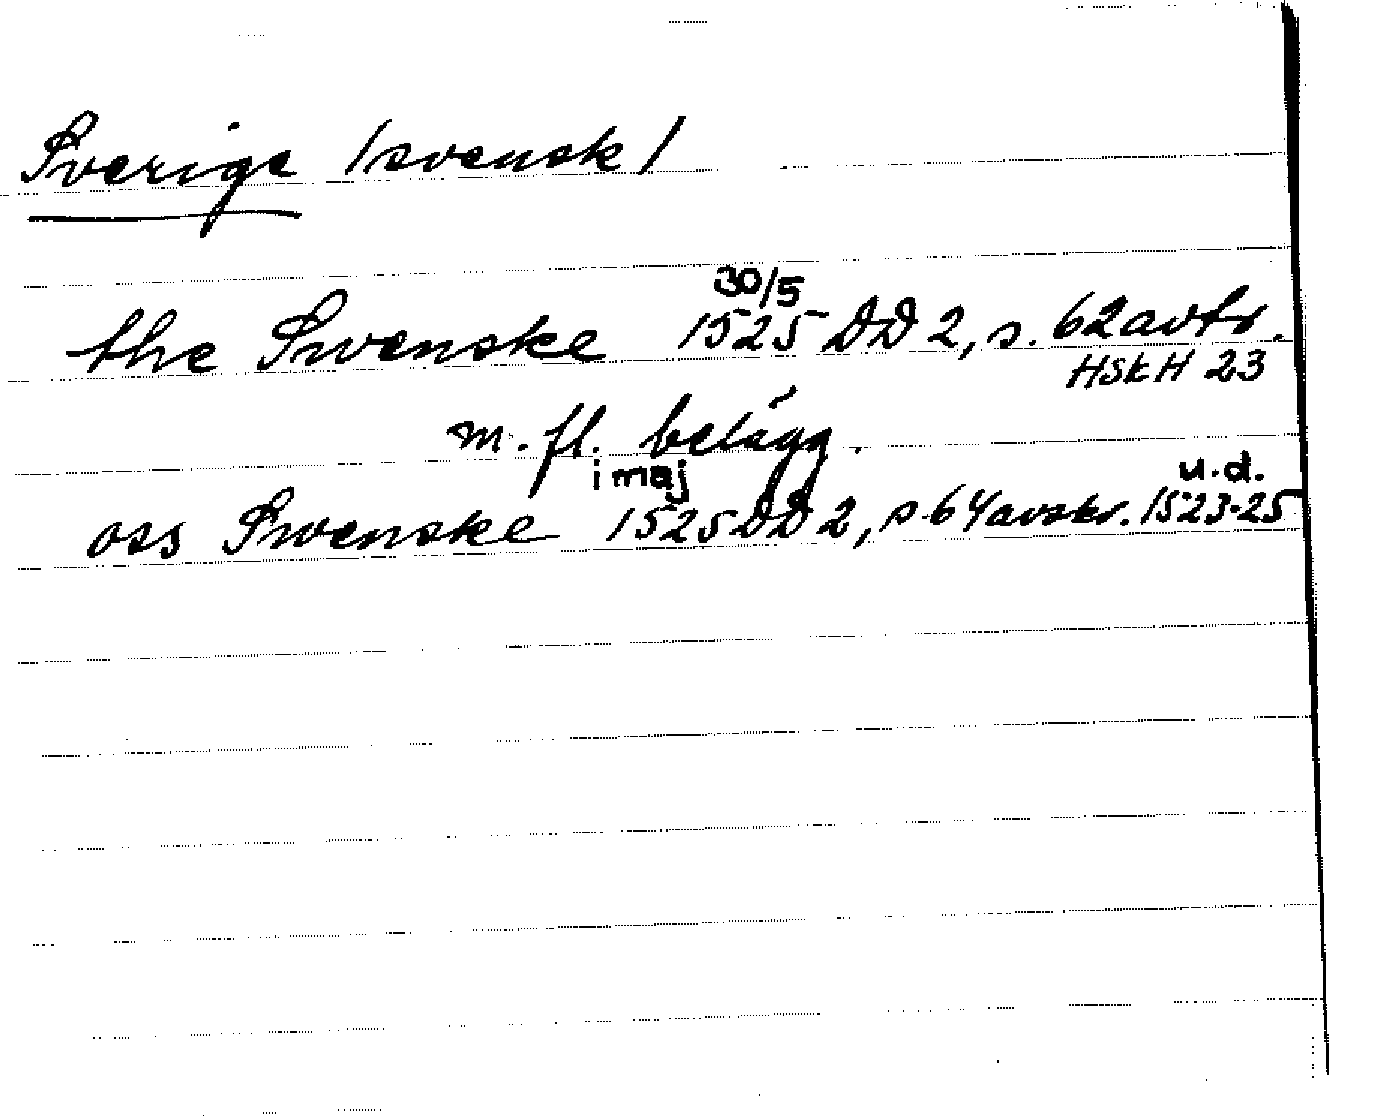 Sverige /svensk/
30/5
the Swenske 1525 DD 2, s. 62 avtr.
HSkH 23
m. fl. belägg.
i maj u.d.
oss Swenske 1525 DD 2, s. 64 avskr. 1523-25